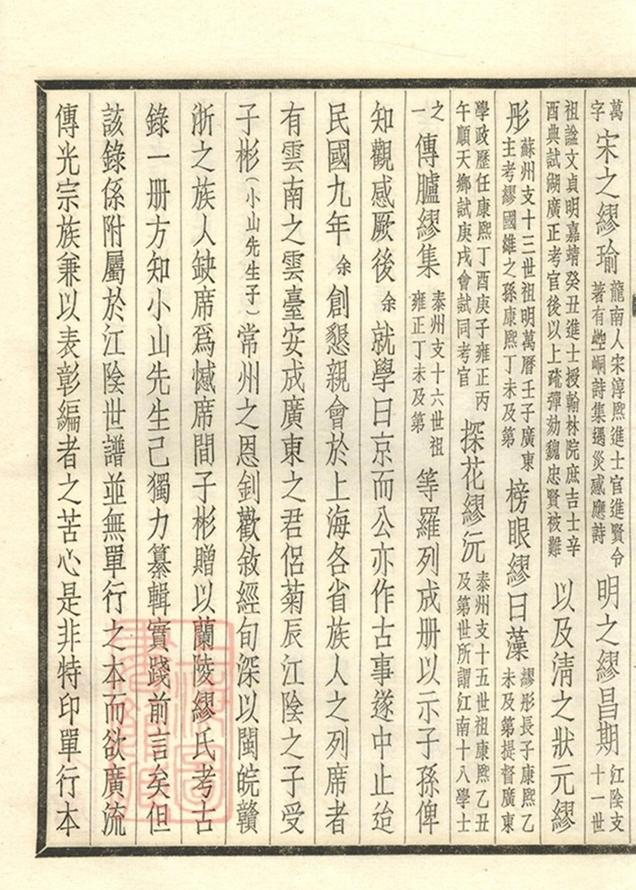 萬字宋之繆瑜龍南人宋淳熙進士官進賢令著有崆峒詩集遇災感應詩明之繆昌期江陰支十一世
祖諡文貞明嘉靖癸丑進士授翰林院庶吉士辛酉典試湖廣正考官後以上疏彈劾魏忠賢被難以及清之狀元繆
彤蘇州支十三世祖明萬曆壬子廣東主考繆國維之孫康熙丁未及第榜眼繆曰藻繆彤長子康熙乙未及第提督廣東
學政歷任康熙丁酉庚子雍正丙午順天鄉試庚戌會試同考官探花繆沅泰州支十五世祖康熙乙丑及第世所謂江南十八學士
之一傳臚繆集泰州支十六世祖雍正丁未及第等羅列成册以示子孫俾
知觀感厥後余就學日京而公亦作古事遂中止迨
民國九年余創懇親會於上海各省族人之列席者
有雲南之雲臺安成廣東之君侶菊辰江陰之子受
子彬(小山先生子)常州之恩釗歡敘經旬深以閩皖贛
浙之族人缺席爲憾席間子彬贈以蘭陵繆氏考古
錄一册方知小山先生已獨力纂輯實踐前言矣但
該錄係附屬於江陰世譜並無單行之本而欲廣流
傳光宗族兼以表彰編者之苦心是非特印單行本